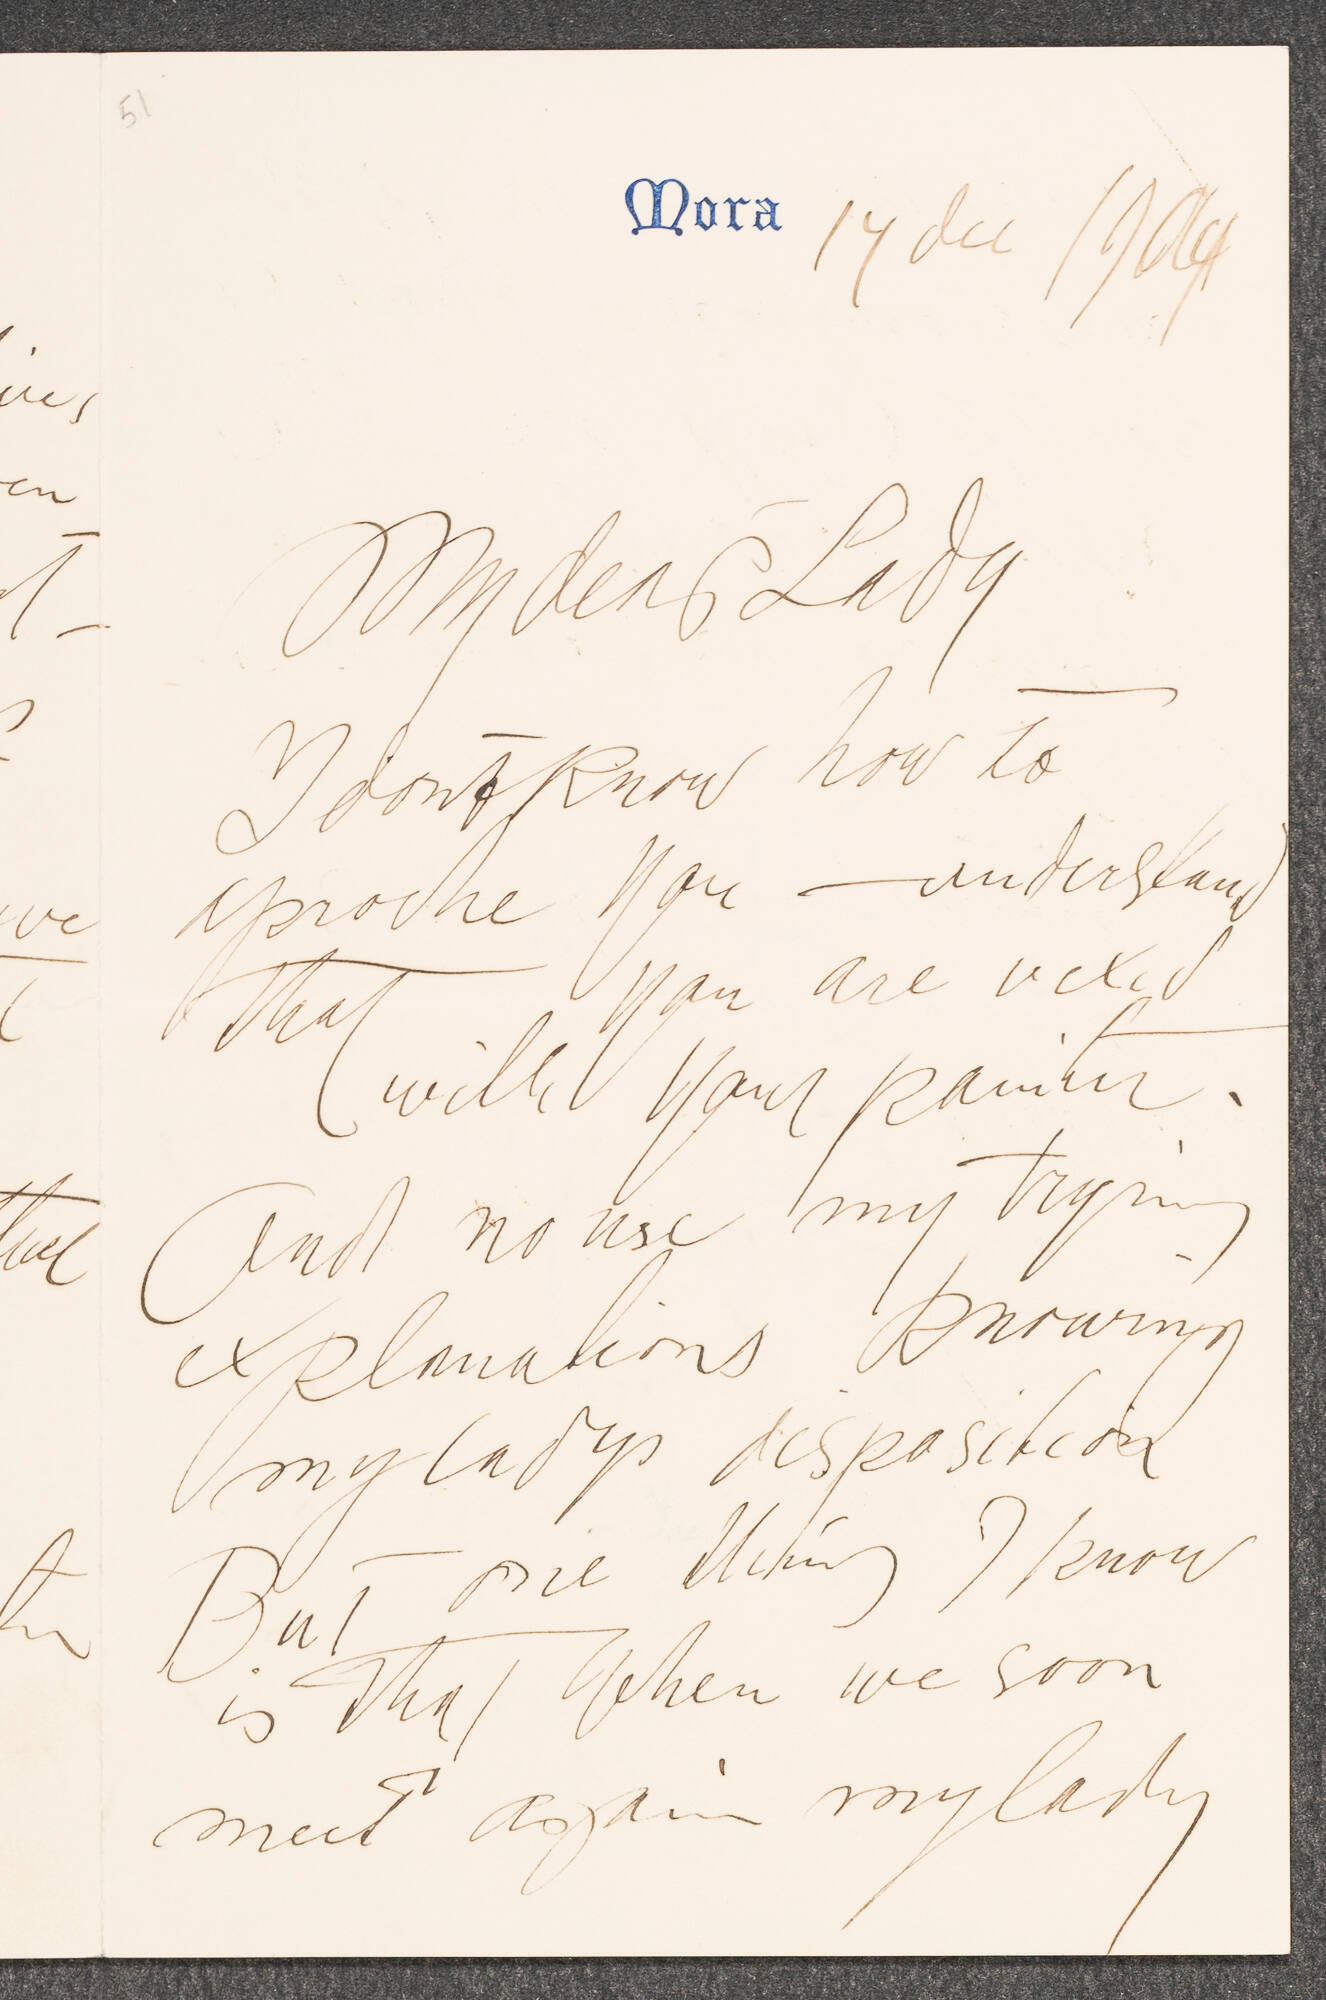 51
Mora 14 dec 190
My dear Lady
I dont know how to
aproche you — understand
that you are vexed
with your painter.
And no use my trying
explanations knowing
my ladys disposition
But one thing I know
is that when we soon
meet again my lady